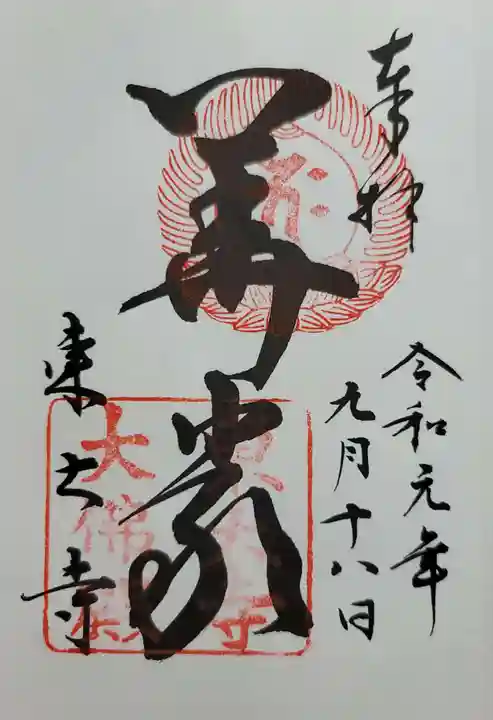 奉拝
令和元年
九月十八日
華厳
東大寺
東大寺
大佛殿